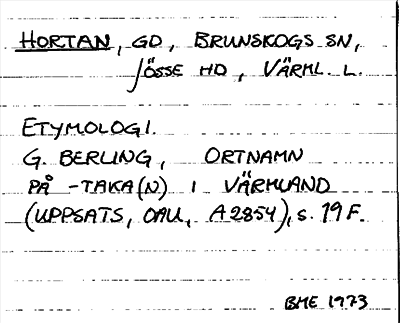 HORTAN, GD, BRUNSKOGS SN,
JÖSSE HD, VÄRML. L.
ETYMOLOGI.
G. BERLING, ORTNAMN
PÅ -TAKA(N) I VÄRMLAND
(UPPSATS, OAU, A2854), s. 19 F.
BME 1973